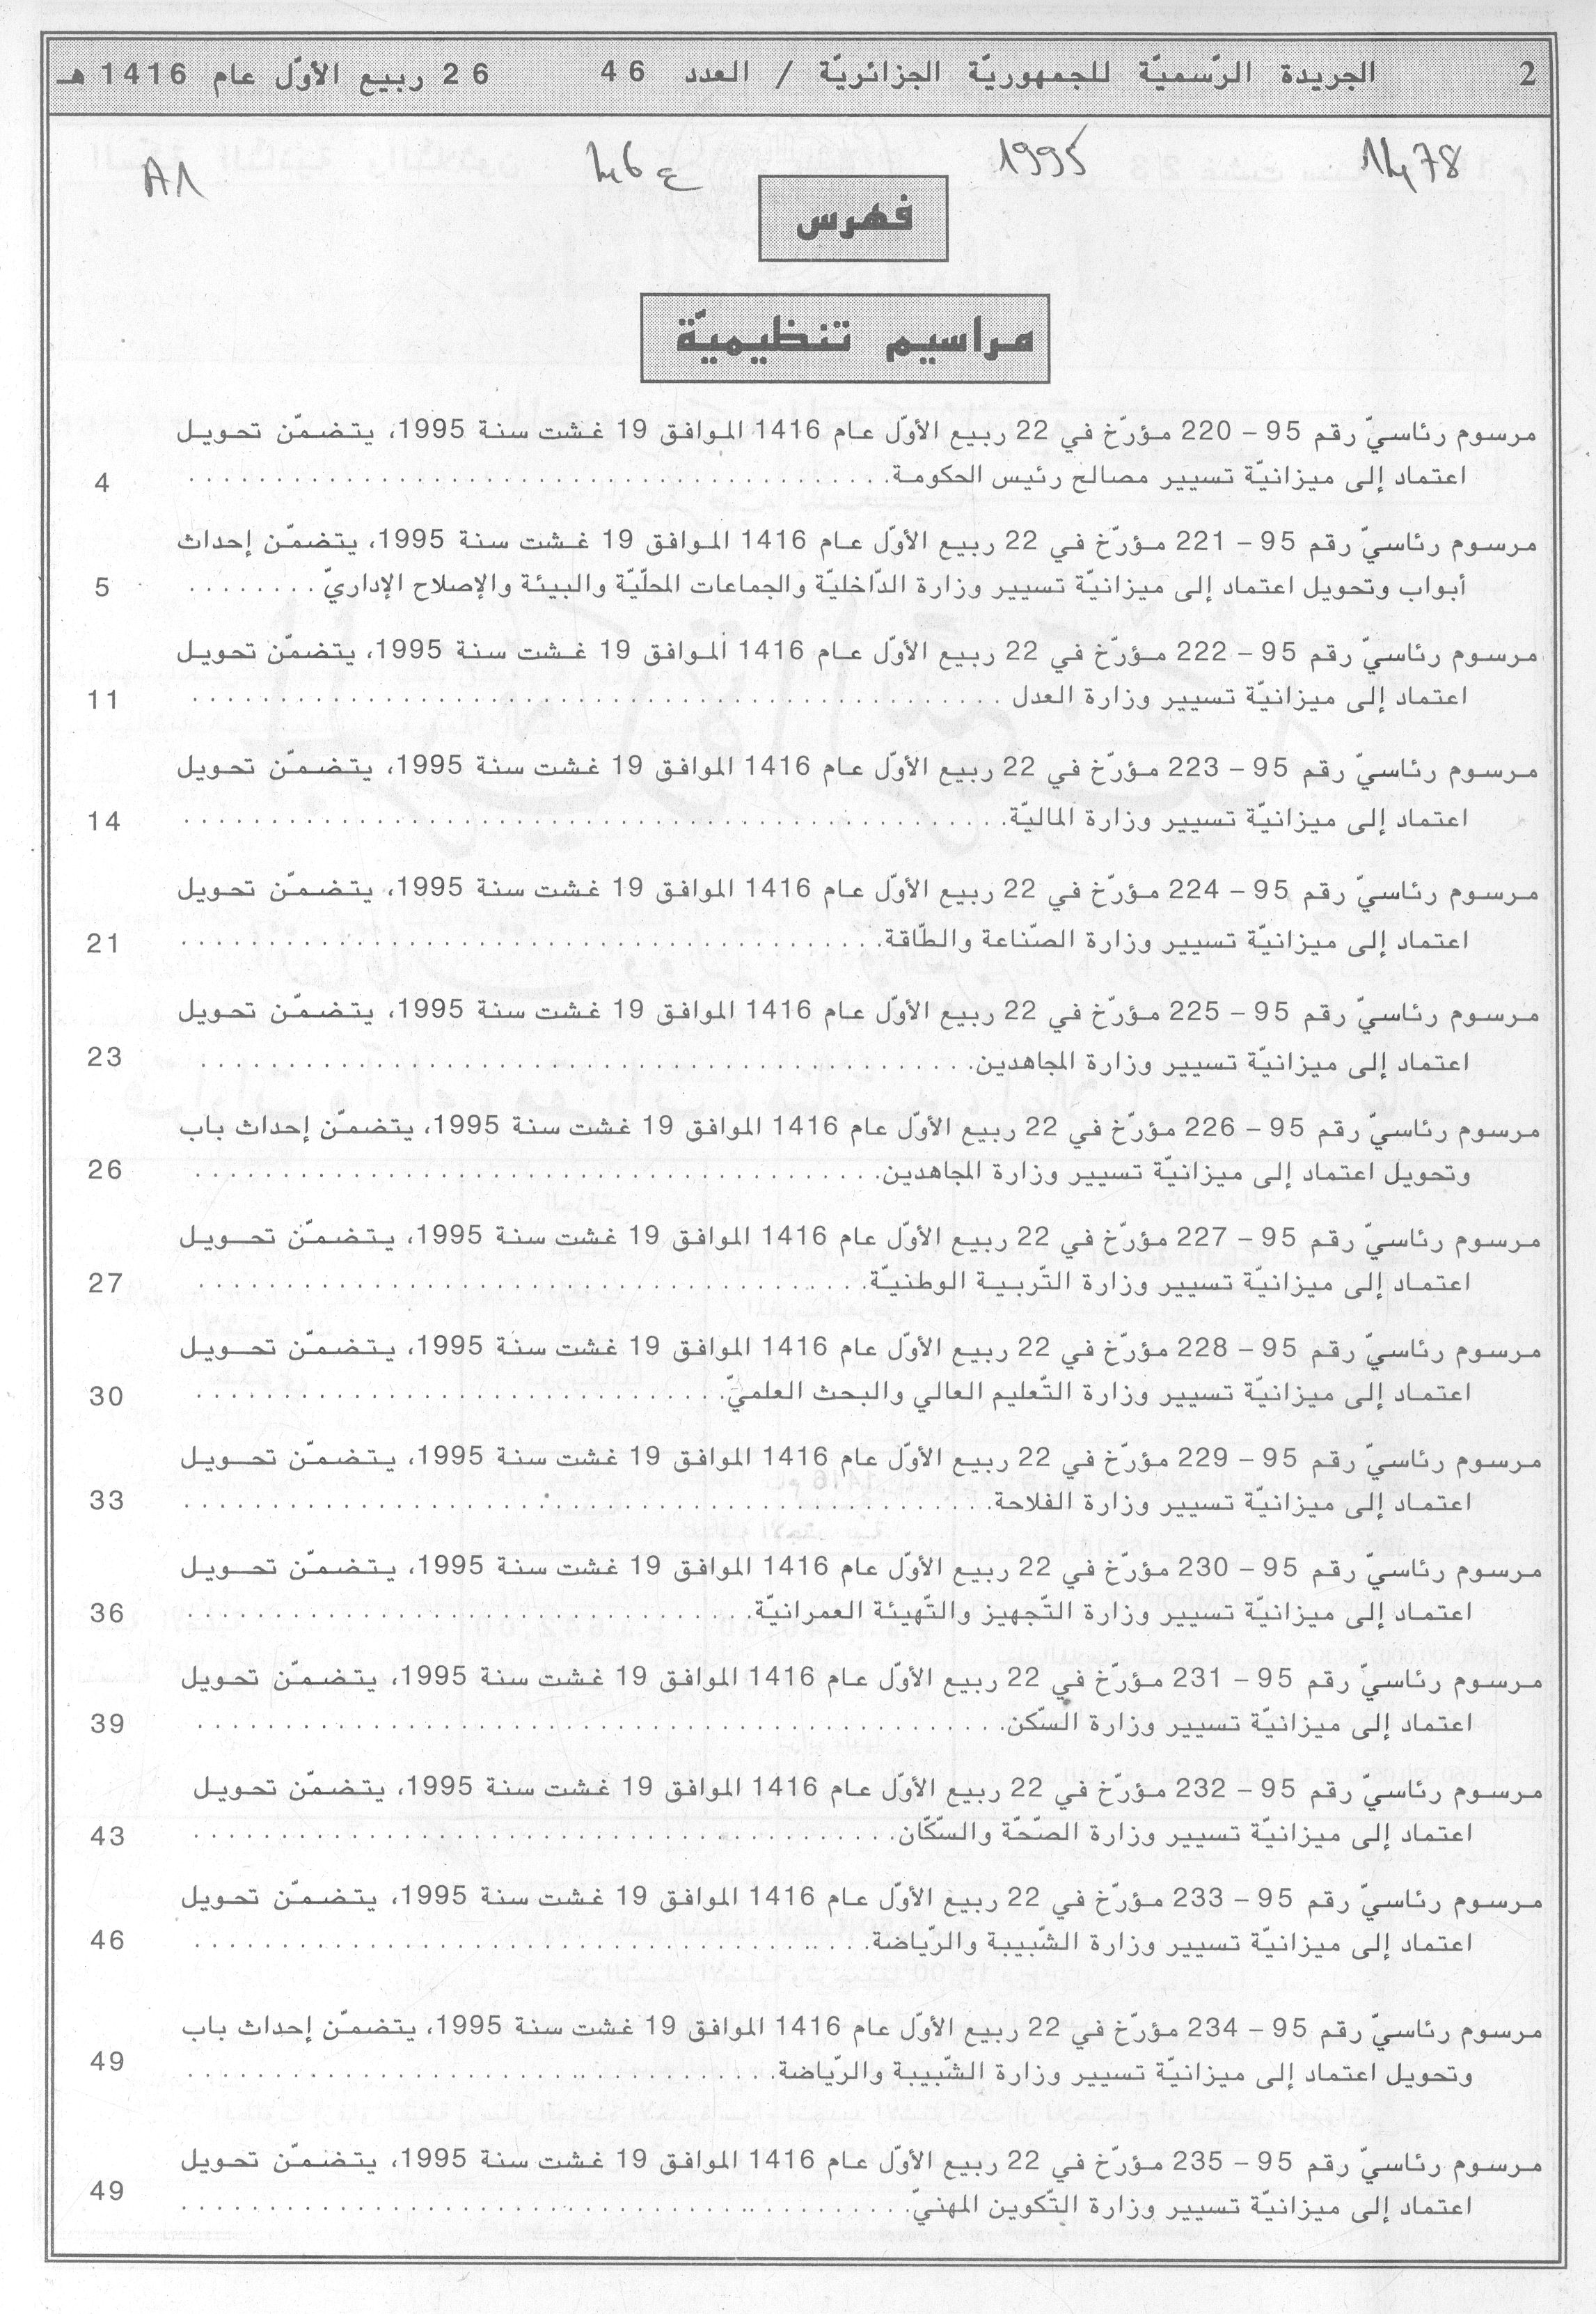 2 الجريدة الرّسميّة للجمهوريّة الجزائريّة / العدد 46 26 ربيع الأوّل عام 1416 هـ
1478 1995 46 ع A1
فهرس
مراسيم تنظيميّة
مرسوم رئاسيّ رقم 95 – 220 مؤرّخ في 22 ربيع الأوّل عام 1416 الموافق 19 غشت سنة 1995، يتضمّن تحويل
اعتماد إلى ميزانيّة تسيير مصالح رئيس الحكومة. . . . . . . . . . 4
مرسوم رئاسيّ رقم 95 – 221 مؤرّخ في 22 ربيع الأوّل عام 1416 الموافق 19 غشت سنة 1995، يتضمّن إحداث
أبواب وتحويل اعتماد إلى ميزانيّة تسيير وزارة الدّاخليّة والجماعات المحلّيّة والبيئة والإصلاح الإداريّ . . . . . . . . 5
مرسوم رئاسيّ رقم 95 – 222 مؤرّخ في 22 ربيع الأوّل عام 1416 الموافق 19 غشت سنة 1995، يتضمّن تحويل
اعتماد إلى ميزانيّة تسيير وزارة العدل . . . . . . . . . . 11
مرسوم رئاسيّ رقم 95 – 223 مؤرّخ في 22 ربيع الأوّل عام 1416 الموافق 19 غشت سنة 1995، يتضمّن تحويل
اعتماد إلى ميزانيّة تسيير وزارة الماليّة. . . . . . . . . . 14
مرسوم رئاسيّ رقم 95 – 224 مؤرّخ في 22 ربيع الأوّل عام 1416 الموافق 19 غشت سنة 1995، يتضمّن تحويل
اعتماد إلى ميزانيّة تسيير وزارة الصّناعة والطّاقة. . . . . . . . . . 21
مرسوم رئاسيّ رقم 95 – 225 مؤرّخ في 22 ربيع الأوّل عام 1416 الموافق 19 غشت سنة 1995، يتضمّن تحويل
اعتماد إلى ميزانيّة تسيير وزارة المجاهدين. . . . . . . . . . 23
مرسوم رئاسيّ رقم 95 – 226 مؤرّخ في 22 ربيع الأوّل عام 1416 الموافق 19 غشت سنة 1995، يتضمّن إحداث باب
وتحويل اعتماد إلى ميزانيّة تسيير وزارة المجاهدين. . . . . . . . . . 26
مرسوم رئاسيّ رقم 95 – 227 مؤرّخ في 22 ربيع الأوّل عام 1416 الموافق 19 غشت سنة 1995، يتضمّن تحويل
اعتماد إلى ميزانيّة تسيير وزارة التّربية الوطنيّة. . . . . . . . . . 27
مرسوم رئاسيّ رقم 95 – 228 مؤرّخ في 22 ربيع الأوّل عام 1416 الموافق 19 غشت سنة 1995، يتضمّن تحويل
اعتماد إلى ميزانيّة تسيير وزارة التّعليم العالي والبحث العلميّ. . . . . . . . . . 30
مرسوم رئاسيّ رقم 95 – 229 مؤرّخ في 22 ربيع الأوّل عام 1416 الموافق 19 غشت سنة 1995، يتضمّن تحويل
اعتماد إلى ميزانيّة تسيير وزارة الفلاحة. . . . . . . . . . 33
مرسوم رئاسيّ رقم 95 – 230 مؤرّخ في 22 ربيع الأوّل عام 1416 الموافق 19 غشت سنة 1995، يتضمّن تحويل
اعتماد إلى ميزانيّة تسيير وزارة التّجهيز والتّهيئة العمرانيّة. . . . . . . . . . 36
مرسوم رئاسيّ رقم 95 – 231 مؤرّخ في 22 ربيع الأوّل عام 1416 الموافق 19 غشت سنة 1995، يتضمّن تحويل
اعتماد إلى ميزانيّة تسيير وزارة السّكن. . . . . . . . . . 39
مرسوم رئاسيّ رقم 95 – 232 مؤرّخ في 22 ربيع الأوّل عام 1416 الموافق 19 غشت سنة 1995، يتضمّن تحويل
اعتماد إلى ميزانيّة تسيير وزارة الصّحّة والسّكّان. . . . . . . . . . 43
مرسوم رئاسيّ رقم 95 – 233 مؤرّخ في 22 ربيع الأوّل عام 1416 الموافق 19 غشت سنة 1995، يتضمّن تحويل
اعتماد إلى ميزانيّة تسيير وزارة الشّبيبة والرّياضة. . . . . . . . . . 46
مرسوم رئاسيّ رقم 95 – 234 مؤرّخ في 22 ربيع الأوّل عام 1416 الموافق 19 غشت سنة 1995، يتضمّن إحداث باب
وتحويل اعتماد إلى ميزانيّة تسيير وزارة الشّبيبة والرّياضة. . . . . . . . . . 49
مرسوم رئاسيّ رقم 95 – 235 مؤرّخ في 22 ربيع الأوّل عام 1416 الموافق 19 غشت سنة 1995، يتضمّن تحويل
اعتماد إلى ميزانيّة تسيير وزارة التّكوين المهنيّ. . . . . . . . . . 49